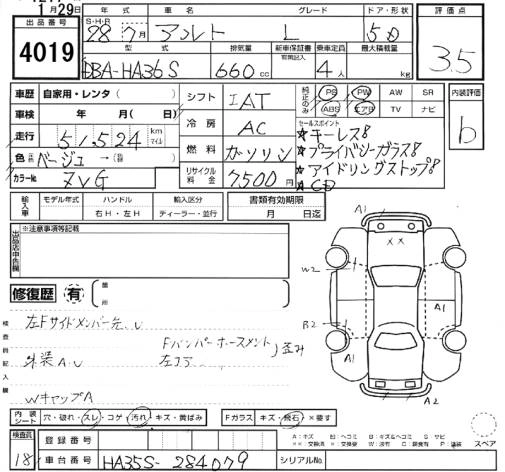 1月29日
出品番号 4019
年式 車名 グレード ドア・形状 評価点
S・H・R 28 7月 アルト L 5D 3.5
型式 排気量 新車保証書 乗車定員 最大積載量
有無記入
DBA-HA36S 660cc 4人 kg
車歴 自家用・レンタ( )
車検 年 月( 日)
走行 51,524 km マイル
色 ベージュ→(
カラーNo. ZVG
シフト IAT
冷房 AC
燃料 ガソリン
リサイクル料金 7500円
純正のみ PS PW AW SR
ABS エアB TV ナビ
セールスポイント
★キーレス8
★プライバシーガラス8
★アイドリングストップ8
★CD
内装評価
b
輸入車 モデル年式 ハンドル 輸入区分
右H・左H ディーラー・並行
書類有効期限
月 日迄
出品店申告欄 ※注意事項等記載
修復歴 有 箇所
検査員記入欄
左Fサイドメンバー先、U
FバンパーホースメントJ歪み
外装A.U 左コ
WキャップA
A1
××
W2
B2
A1
A1
A2
内装シート 穴・破れ・スレ・コゲ・汚れ・キズ・黄ばみ
Fガラス キズ・飛石・×要す
検査員 18
登録番号
車台番号 HA35S-284079
シリアルNo.
A:キズ B:ヘコミ B:キズ&ヘコミ S:サビ
××:交換済 ×:交換要 W:波有 C:腐食有 P:塗装
スペア